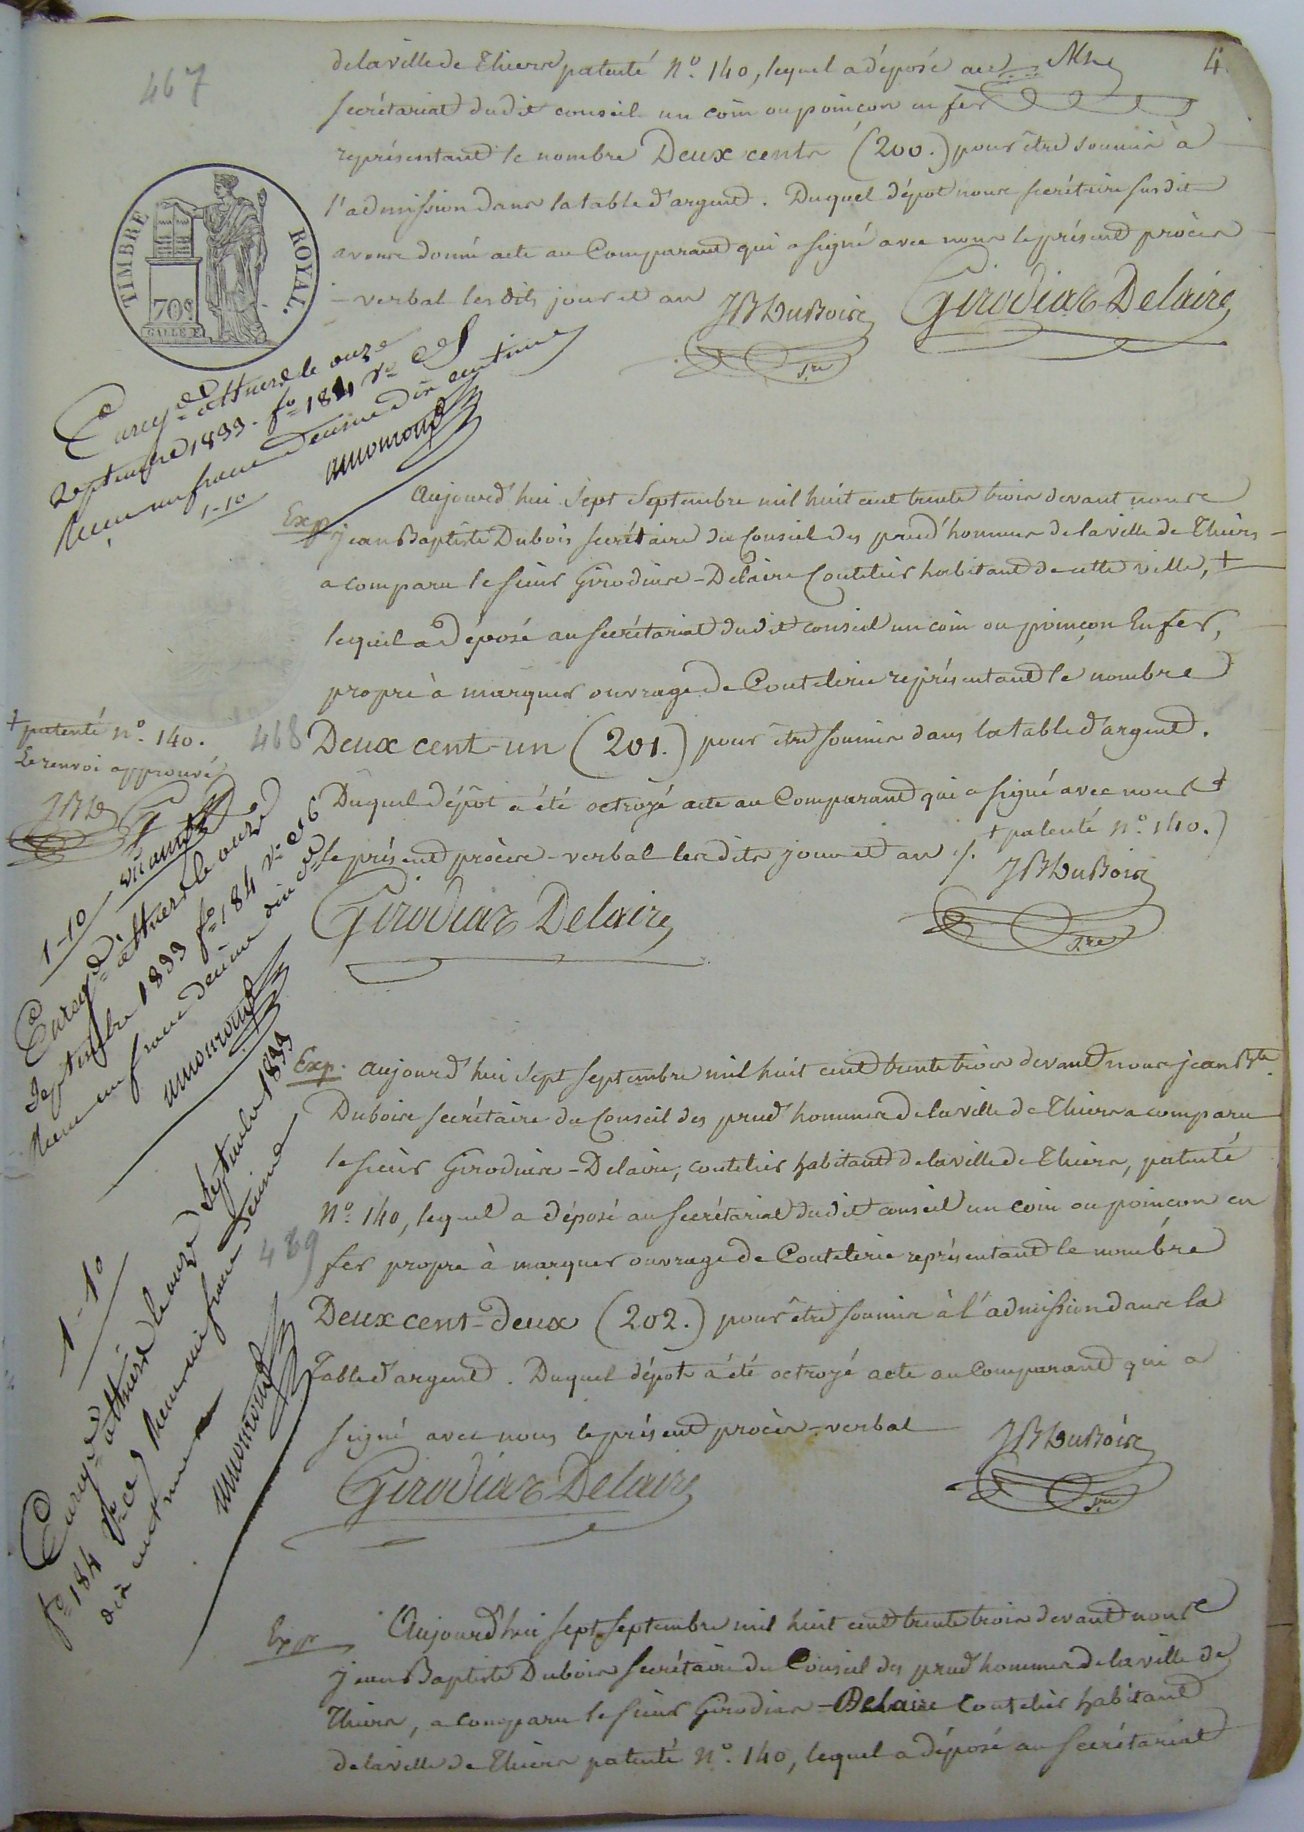 467
4
dela ville de Thiers patenté N.º 140, lequel a déposé au
secrétariat dudit conseil un coin ou poinçon en fer
représentant le nombre Deux cents (200.) pour être soumis à
l'admission dans la table d'argent. Duquel dépot nous secrétaire susdit
avons donné acte au Comparant qui a signé avec nous le présent procès
-verbal les dits jour et an
JBDuBois Girodias Delaire
S.re
TIMBRE ROYAL.
70c
Enreg.é à Thiers le onze
septembre 1833. f.o 184 r.o
Reçu un franc decime dix centimes
1-10
Exp.
Aujourd'hui sept Septembre mil huit cent trente trois devant nous
jean Baptiste Dubois secrétaire du Conseil des prud'hommes de la ville de Thiers
a comparu le sieur Girodias-Delaire Coutelier habitant de cette ville, +
lequel a déposé au secrétariat dudit conseil un coin ou poinçon En fer,
propre à marquer ouvrage de Coutelerie représentant le nombre
+ patenté n.º 140.
Le renvoi approuvé
JBD
468
Deux cent-un (201.) pour être soumis dans la table d'argent.
Duquel dépôt a été octroyé acte au Comparant qui a signé avec nous +
le présent procès-verbal les dits jour et an /. + patenté N.º 140.)
Girodias Delaire JBDuBois
S.re
1-10
Enreg.é à Thiers le onze
septembre 1833 f.o 184 r.o
Reçu un franc decime dix c.
Exp. Aujourd'hui sept septembre mil huit cent trente trois devant nous jean B.te
Dubois secrétaire du Conseil des prud'hommes de la ville de Thiers a comparu
le sieur Girodias-Delaire, coutelier habitant de la ville de Thiers, patenté
N.º 140, lequel a déposé au secrétariat dudit conseil un coin ou poinçon en
469
fer propre à marquer ouvrage de Coutelerie représentant le nombre
Deux cent-deux (202.) pour être soumis à l'admission dans la
Table d'argent. Duquel dépôt a été octroyé acte au Comparant qui a
signé avec nous le présent procès-verbal
JBDuBois
Girodias Delaire
S.re
1-10
Enreg.é à Thiers le onze septembre 1833
f.o 184 Reçu un franc decime
dix centimes
Exp.
Aujourd'hui sept septembre mil huit cent trente trois devant nous
jean Baptiste Dubois secrétaire du Conseil des prud'hommes de la ville de
Thiers, a comparu le sieur Girodias-Delaire Coutelier habitant
de la ville de Thiers patenté N.º 140, lequel a déposé au secrétariat